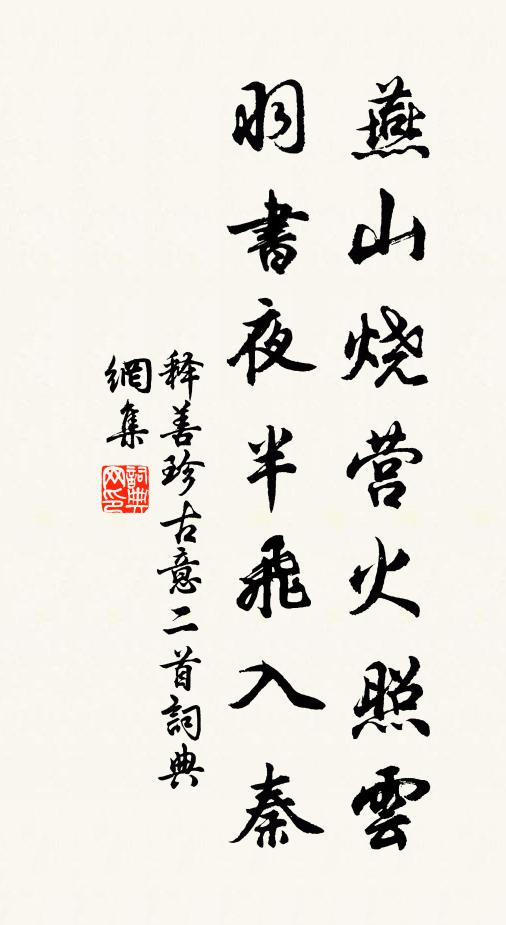 燕山烧营火照雲
羽書夜半飛入秦
释善珍古意二首詞典
網集
詞典網印